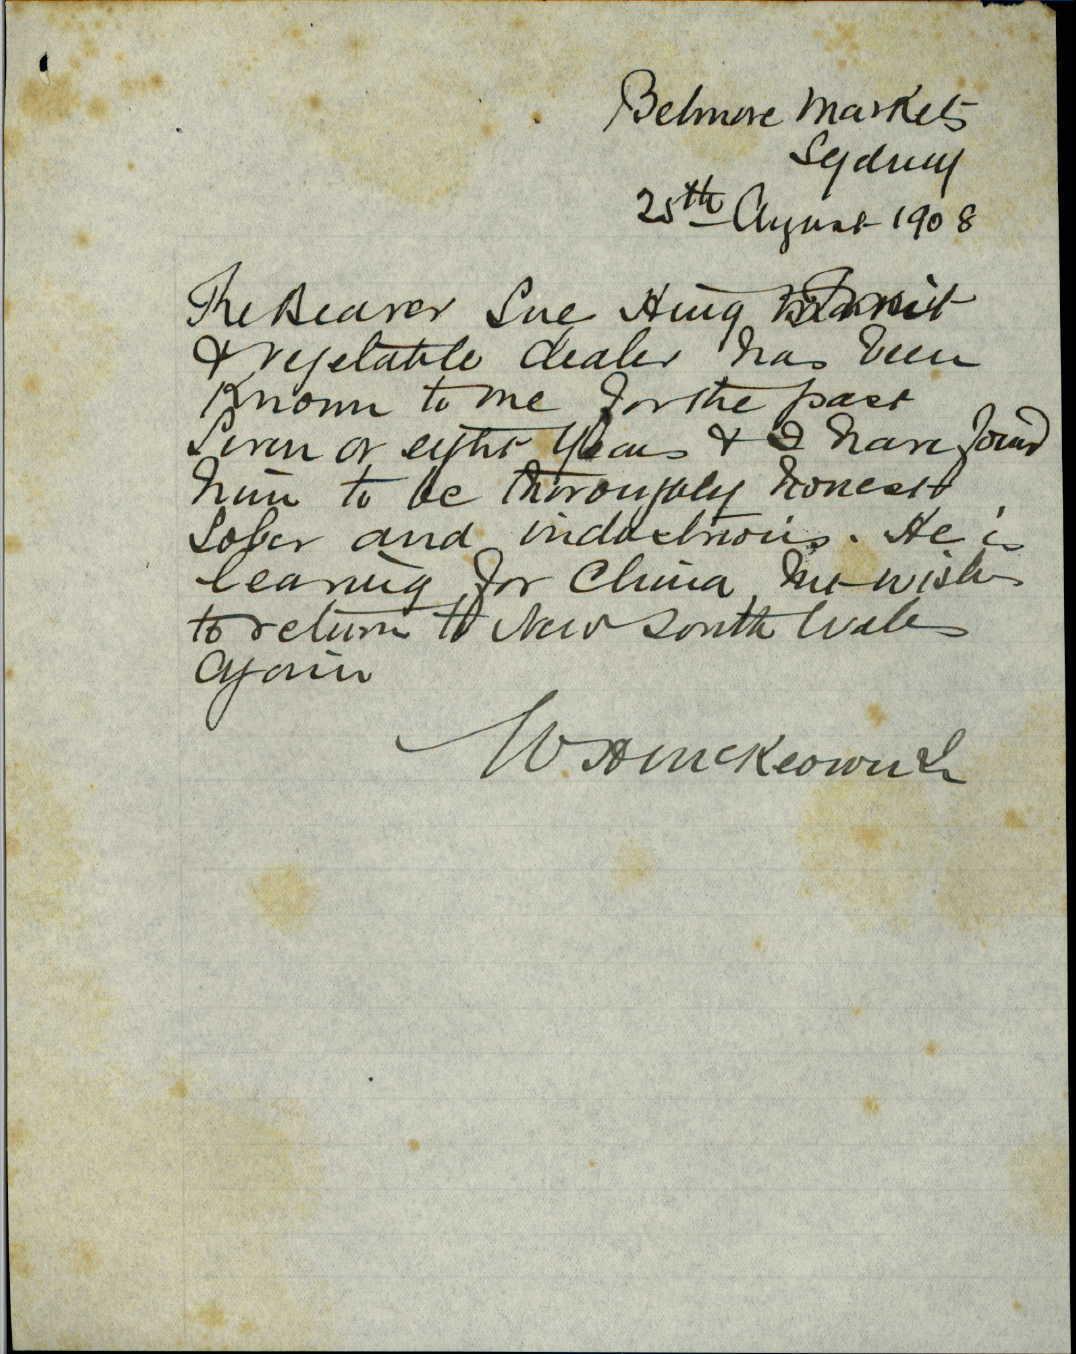 Belmore Markets
Sydney
25th August 1908
The Bearer Sue Hing Fruit
& vegetable dealer has been
known to me for the past
seven or eight years & I have found
him to be thoroughly honest
sober and industrious. He is
leaving for China but wishes
to return to New South Wales
again
W H McKeown